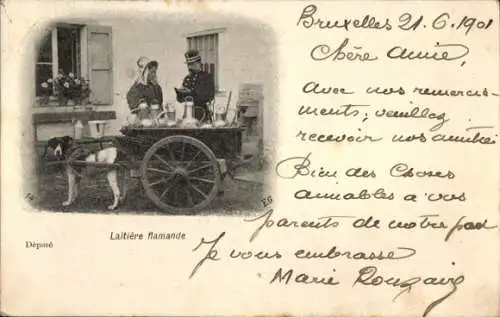 Bruxelles 21.6.1901
Chère Amie,
Avec nos remercie-
ments, veuillez
recevoir nos amitiés
Bien des choses
amiables a vos
parents de notre part
Je vous embrasse
Marie
14
EG
Déposé
Laitière flamande